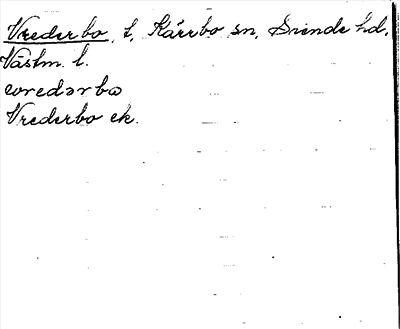 Vrederbo, t, Kärrbo sn, Siende hd,
Västm. l.
vredərbω
Vrederbo ek.